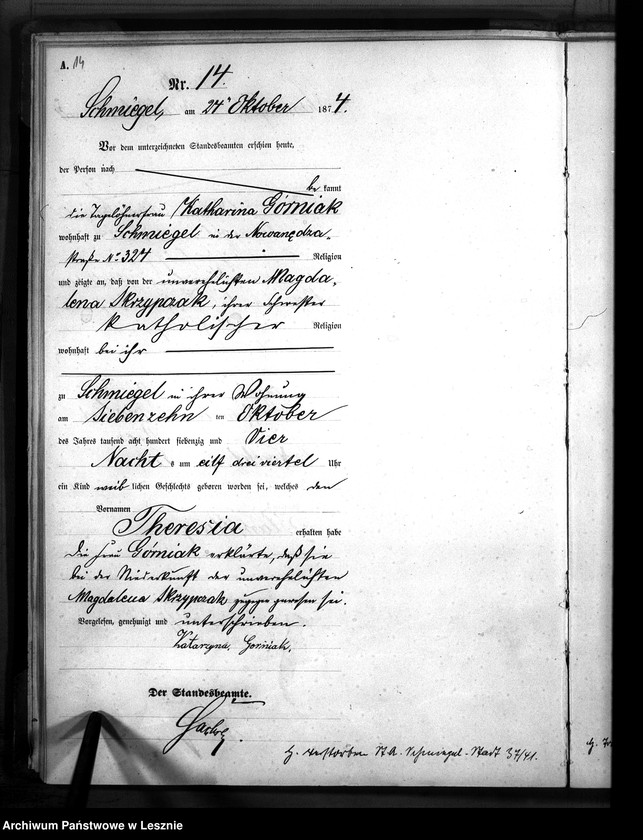 A. 14
Nr. 14.
Schmiegel, am 24ᵗ Oktober 1874.
Vor dem unterzeichneten Standesbeamten erschien heute,
der Person nach
be kannt
die Tagelöhnerfrau Katharina Górniak
wohnhaft zu Schmiegel in der Nowanędza-
straße No 324 Religion
und zeigte an, daß von der unverehelichten Magda-
lena Skrzypczak, ihrer Schwester
katholischer Religion
wohnhaft bei ihr
zu Schmiegel in ihrer Wohnung
am siebenzehn ten Oktober
des Jahres tausend acht hundert siebenzig und Vier
Nacht s um eilf dreiviertel Uhr
ein Kind weib lichen Geschlechts geboren worden sei, welches den
Vornamen
Theresia erhalten habe
Die Frau Górniak erklärte, daß sie
bei der Niederkunft der unverehelichten
Magdalena Skrzypczak zugegen gewesen sei.
Vorgelesen, genehmigt und unterschrieben.
Katarzyna, Gorniak,
Der Standesbeamte.
H. verstorben St.A. Schmiegel-Stadt 37/41.
Archiwum Państwowe w Lesznie